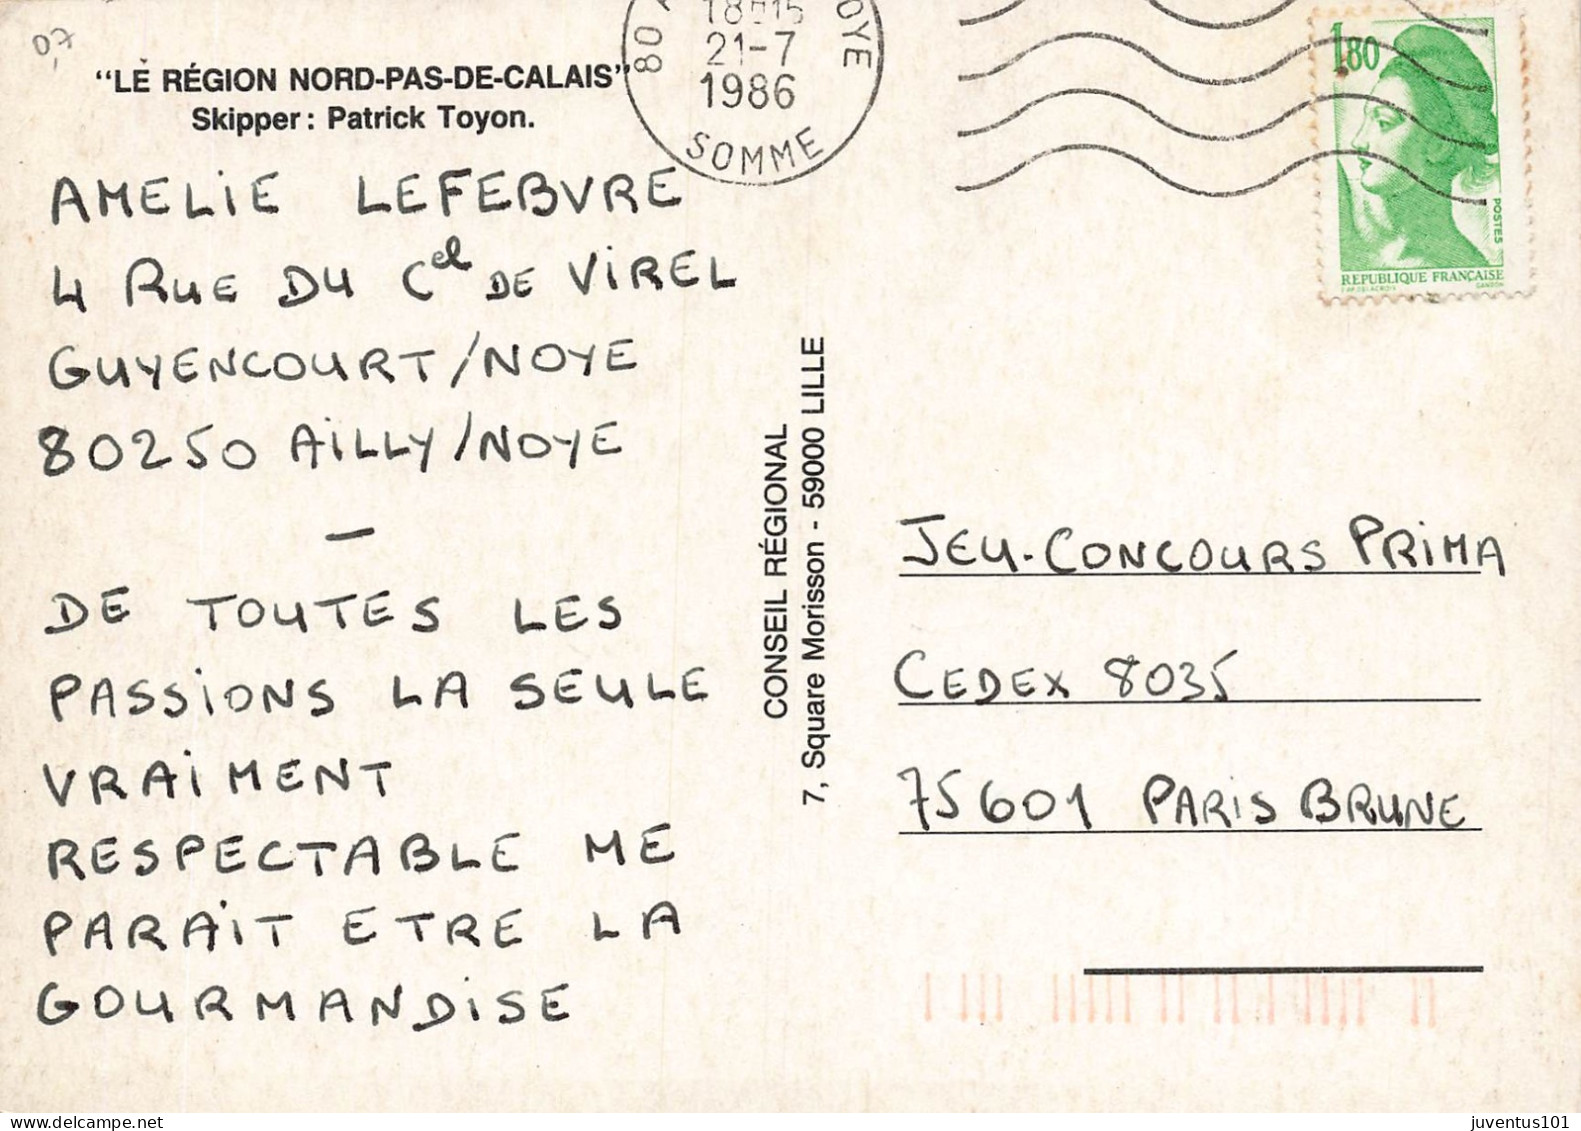 0,7
"LE RÉGION NORD-PAS-DE-CALAIS"
Skipper : Patrick Toyon.
AMELIE LEFEBVRE
4 RUE DU Cel DE VIREL
GUYENCOURT/NOYE
80250 AILLY/NOYE
—
DE TOUTES LES
PASSIONS LA SEULE
VRAIMENT
RESPECTABLE ME
PARAÎT ETRE LA
GOURMANDISE
CONSEIL RÉGIONAL
7, Square Morisson - 59000 LILLE
80 A OYE
18H15
21-7
1986
SOMME
1,80
POSTES
REPUBLIQUE FRANÇAISE
GANDON
JEU-CONCOURS PRIMA
CEDEX 8035
75601 PARIS BRUNE
juventus101